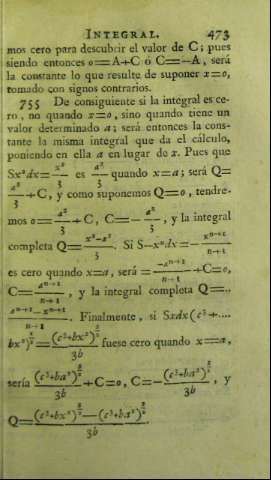 INTEGRAL. 473
mos cero para descubrir el valor de C; pues
siendo entonces o=A+C ó C=-A, será
la constante lo que resulte de suponer x=o,
tomado con signos contrarios.
755 De consiguiente si la integral es ce-
ro, no quando x=o, sino quando tiene un
valor determinado a; será entonces la cons-
tante la misma integral que da el cálculo,
poniendo en ella a en lugar de x. Pues que
Sx²dx= x³/3 es a³/3 quando x=a; será Q=
a³/3+C, y como suponemos Q=o, tendre-
mos o= a³/3+C, C=- a³/3, y la integral
completa Q= (x³-a³)/3. Si S-xⁿdx=- xⁿ⁺¹/(n+1)
es cero quando x=a, será = -aⁿ⁺¹/(n+1)+C=o,
C= aⁿ⁺¹/(n+1), y la integral completa Q=..
(aⁿ⁺¹-xⁿ⁺¹)/(n+1). Finalmente, si Sxdx(c²+....
bx²)^½= (c²+bx²)^(3/2)/3b fuese cero quando x=a,
sería (c²+ba²)^(3/2)/3b+C=o, C=- (c²+ba²)^(3/2)/3b, y
Q= ((c²+bx²)^(3/2)-(c²+ba²)^(3/2))/3b.